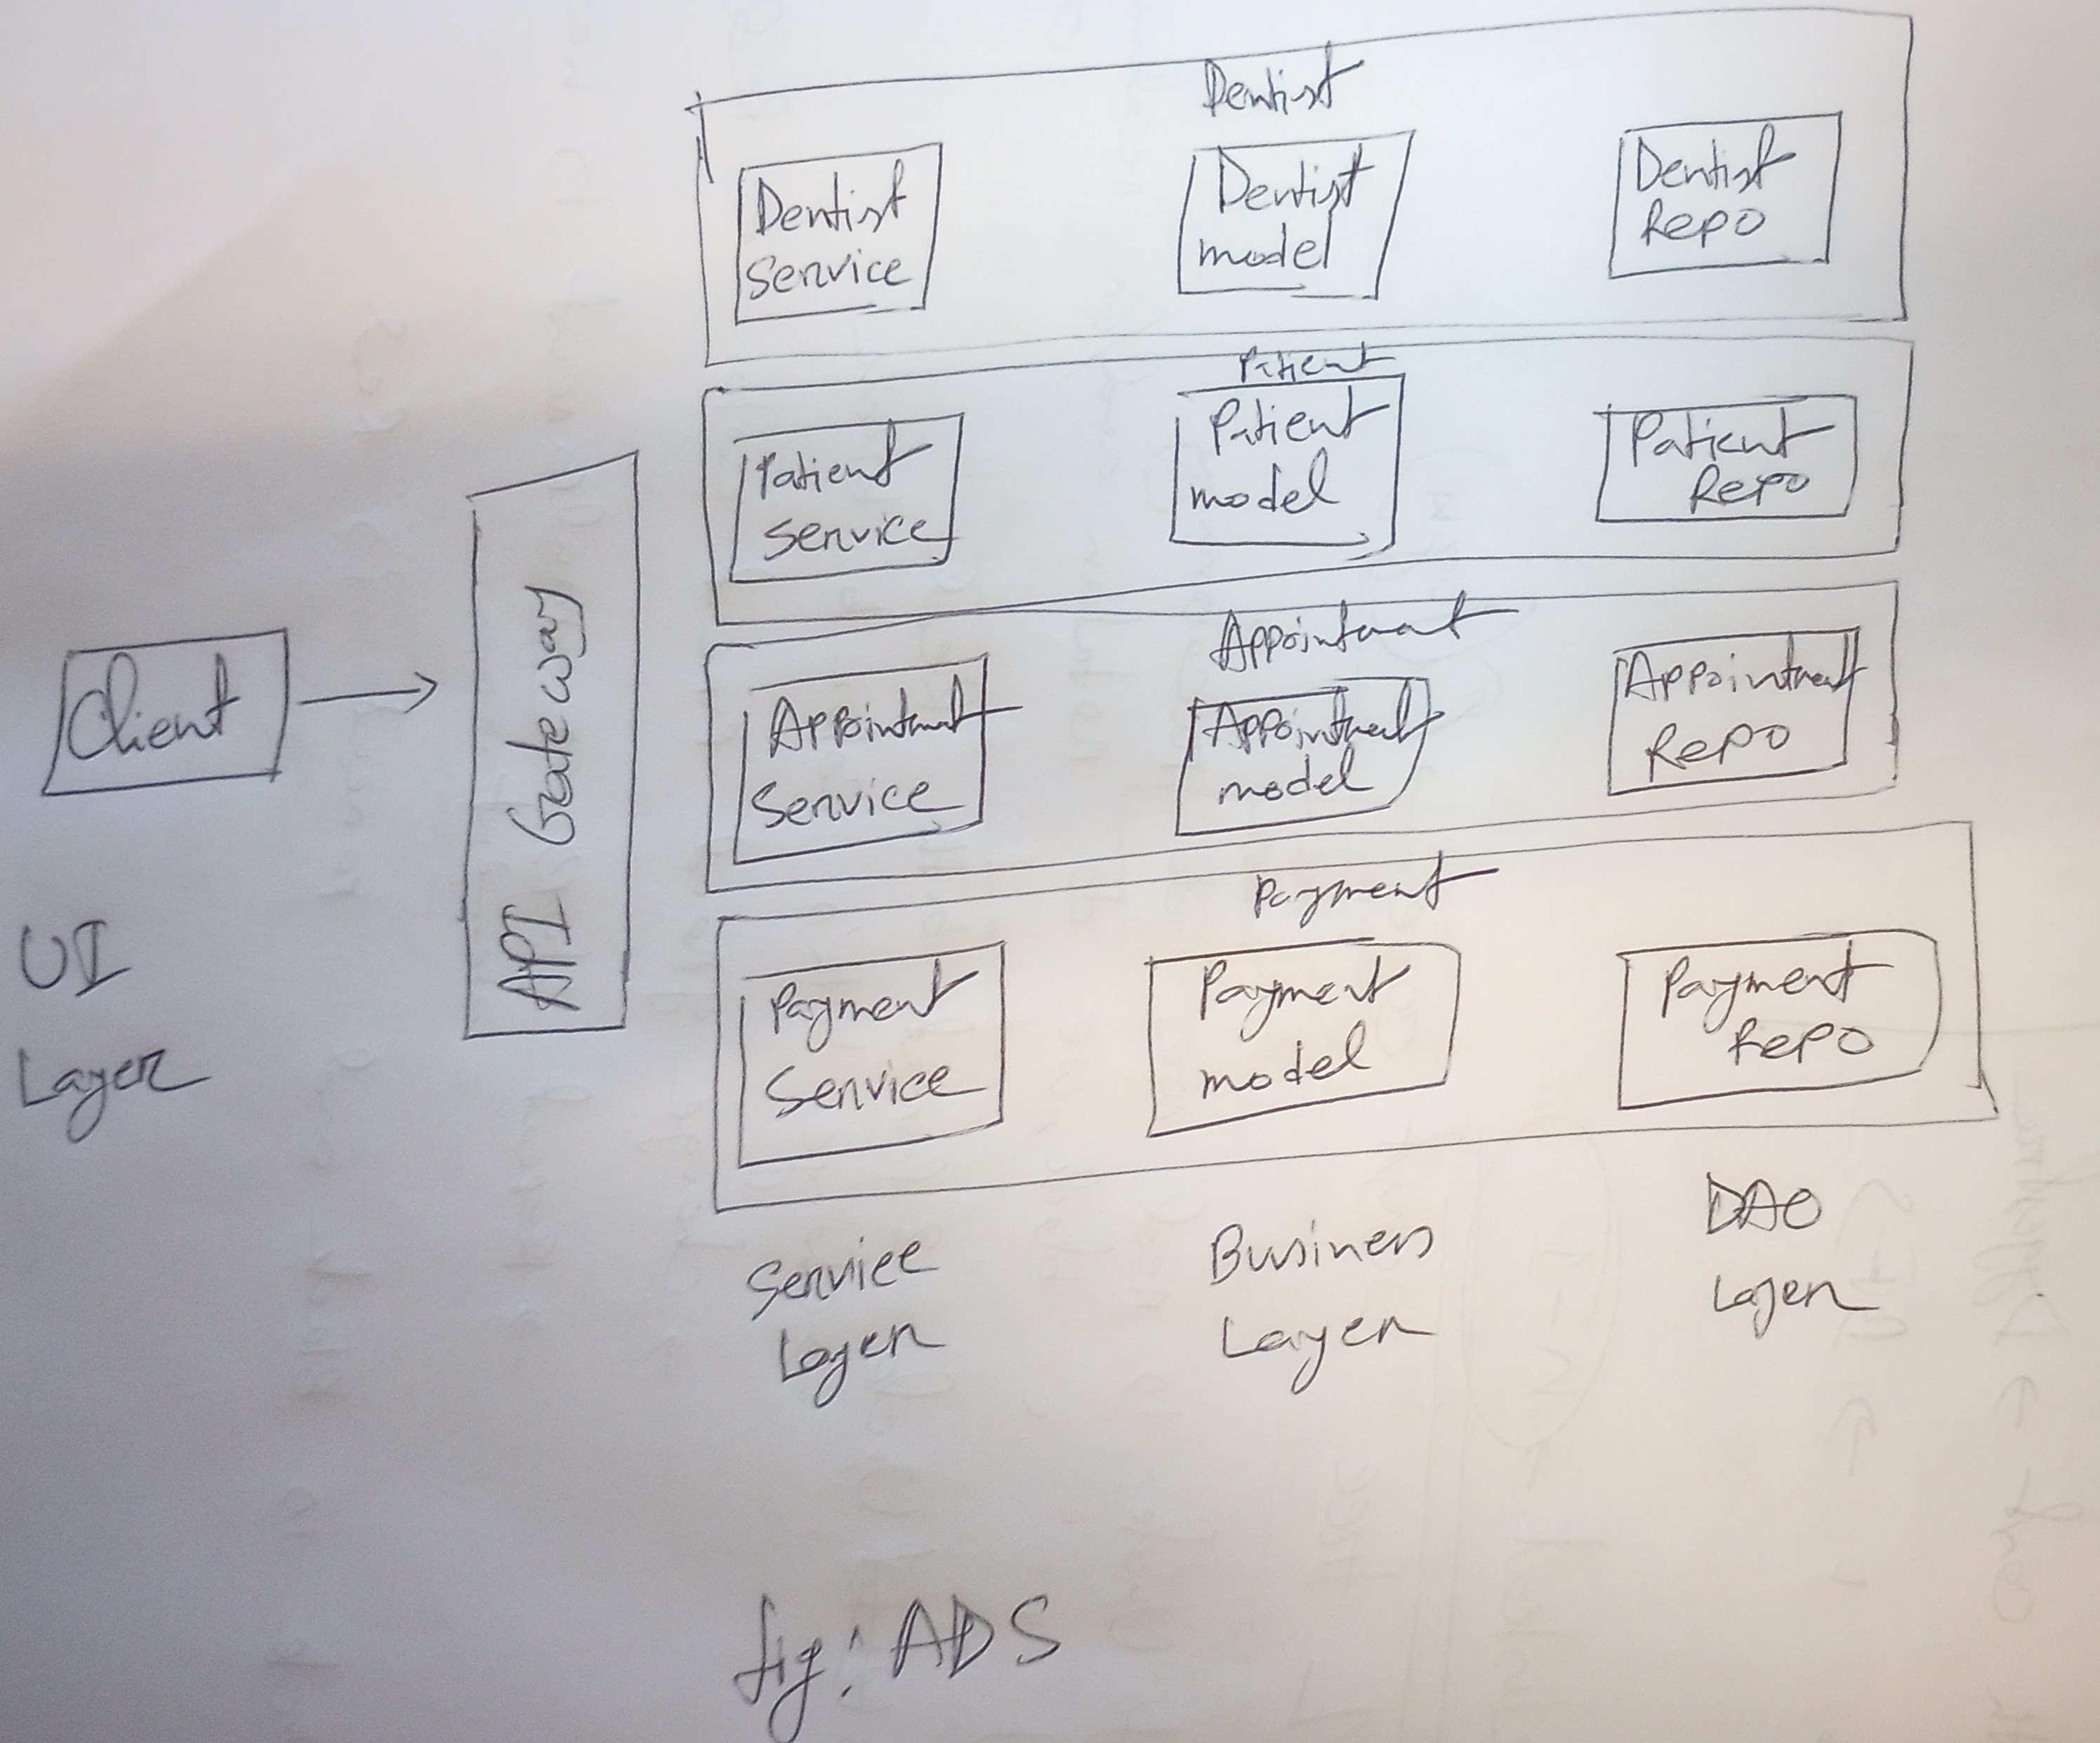 Dentist
Dentist
Service
Dentist
model
Dentist
Repo
Patient
Patient
Service
Patient
model
Patient
Repo
Client
API Gateway
Appointment
Appointment
Service
Appointment
model
Appointment
Repo
Payment
Payment
Service
Payment
model
Payment
Repo
UI
Layer
Service
Layer
Business
Layer
DAO
Layer
fig: ADS